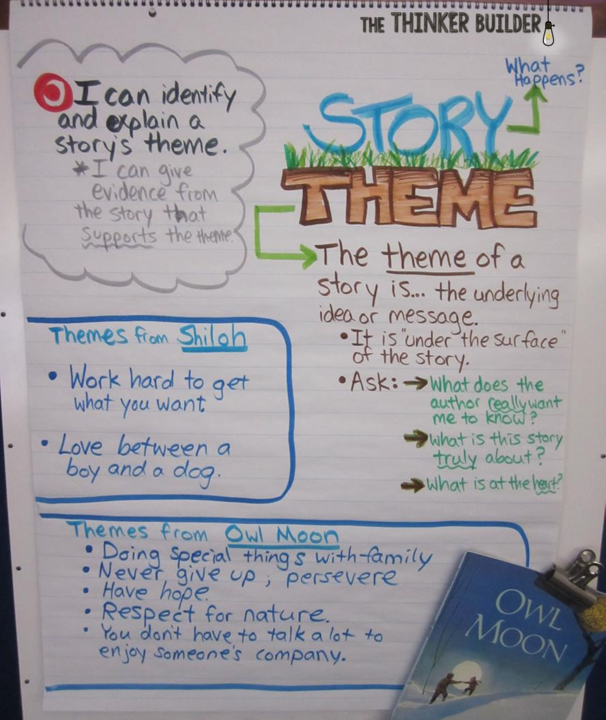 THE THINKER BUILDER
I can identify
and explain a
story's theme.
*I can give
evidence from
the story that
supports the theme.
What
Happens?
STORY
THEME
The theme of a
story is... the underlying
idea or message.
• It is "under the surface"
of the story.
• Ask: → What does the
author really want
me to know?
→ What is this story
truly about?
→ What is at the heart?
Themes from Shiloh
• Work hard to get
what you want
• Love between a
boy and a dog.
Themes from Owl Moon
• Doing special things with family
• Never give up; persevere
• Have hope.
• Respect for nature.
• You don't have to talk a lot to
enjoy someone's company.
OWL
MOON